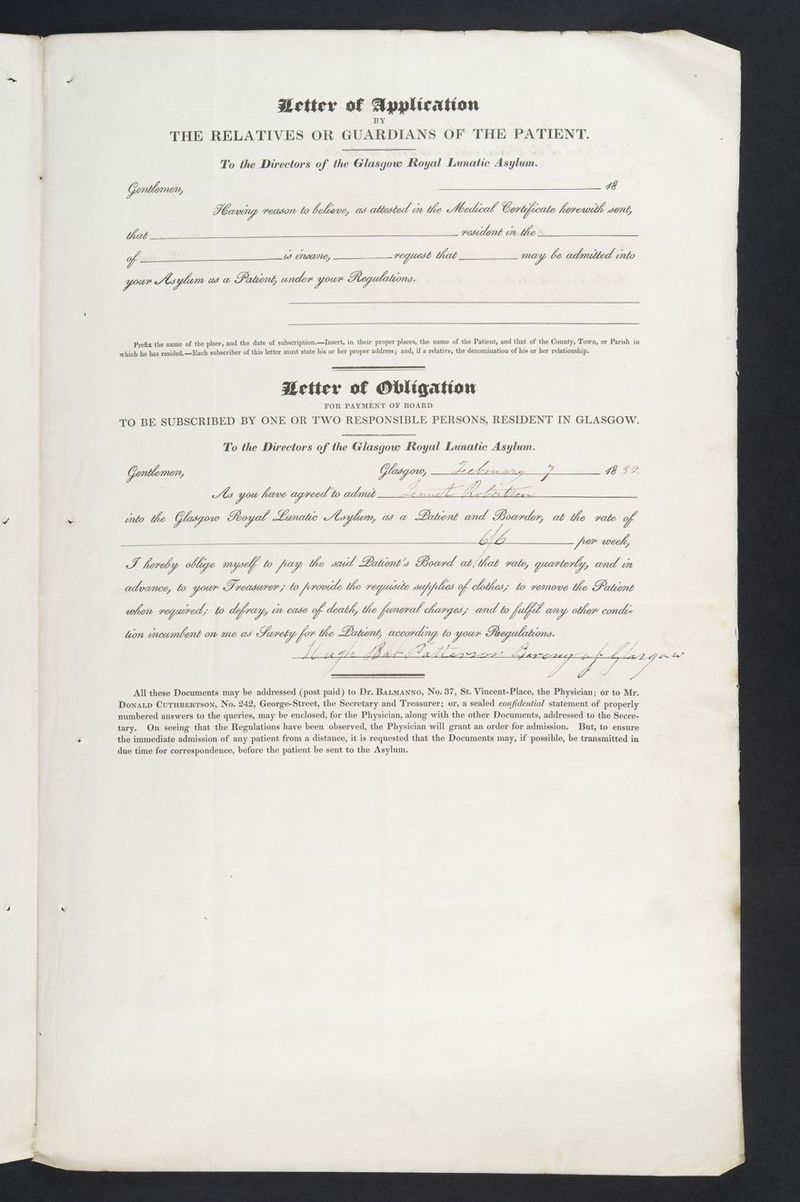 Letter of Application
BY
THE RELATIVES OR GUARDIANS OF THE PATIENT.
To the Directors of the Glasgow Royal Lunatic Asylum.
Gentlemen, 18
Having reason to believe, as attested in the Medical Certificate herewith sent,
that resident in the
of is insane, request that may be admitted into
your Asylum as a Patient, under your Regulations.
Prefix the name of the place, and the date of subscription.—Insert, in their proper places, the name of the Patient, and that of the County, Town, or Parish in
which he has resided.—Each subscriber of this letter must state his or her proper address; and, if a relative, the denomination of his or her relationship.
Letter of Obligation
FOR PAYMENT OF BOARD
TO BE SUBSCRIBED BY ONE OR TWO RESPONSIBLE PERSONS, RESIDENT IN GLASGOW.
To the Directors of the Glasgow Royal Lunatic Asylum.
Gentlemen, Glasgow, February 7 18
As you have agreed to admit Robertson
into the Glasgow Royal Lunatic Asylum, as a Patient and Boarder, at the rate of
6/6 per week,
I hereby oblige myself to pay the said Patient's Board at that rate, quarterly, and in
advance, to your Treasurer; to provide the requisite supplies of clothes; to remove the Patient
when required; to defray, in case of death, the funeral charges; and to fulfil any other condi-
tion incumbent on me as Surety for the Patient, according to your Regulations.
Hugh Patterson Barony of Glasgow
All these Documents may be addressed (post paid) to Dr. BALMANNO, No. 37, St. Vincent-Place, the Physician; or to Mr.
DONALD CUTHBERTSON, No. 242, George-Street, the Secretary and Treasurer; or, a sealed confidential statement of properly
numbered answers to the queries, may be enclosed, for the Physician, along with the other Documents, addressed to the Secre-
tary. On seeing that the Regulations have been observed, the Physician will grant an order for admission. But, to ensure
the immediate admission of any patient from a distance, it is requested that the Documents may, if possible, be transmitted in
due time for correspondence, before the patient be sent to the Asylum.